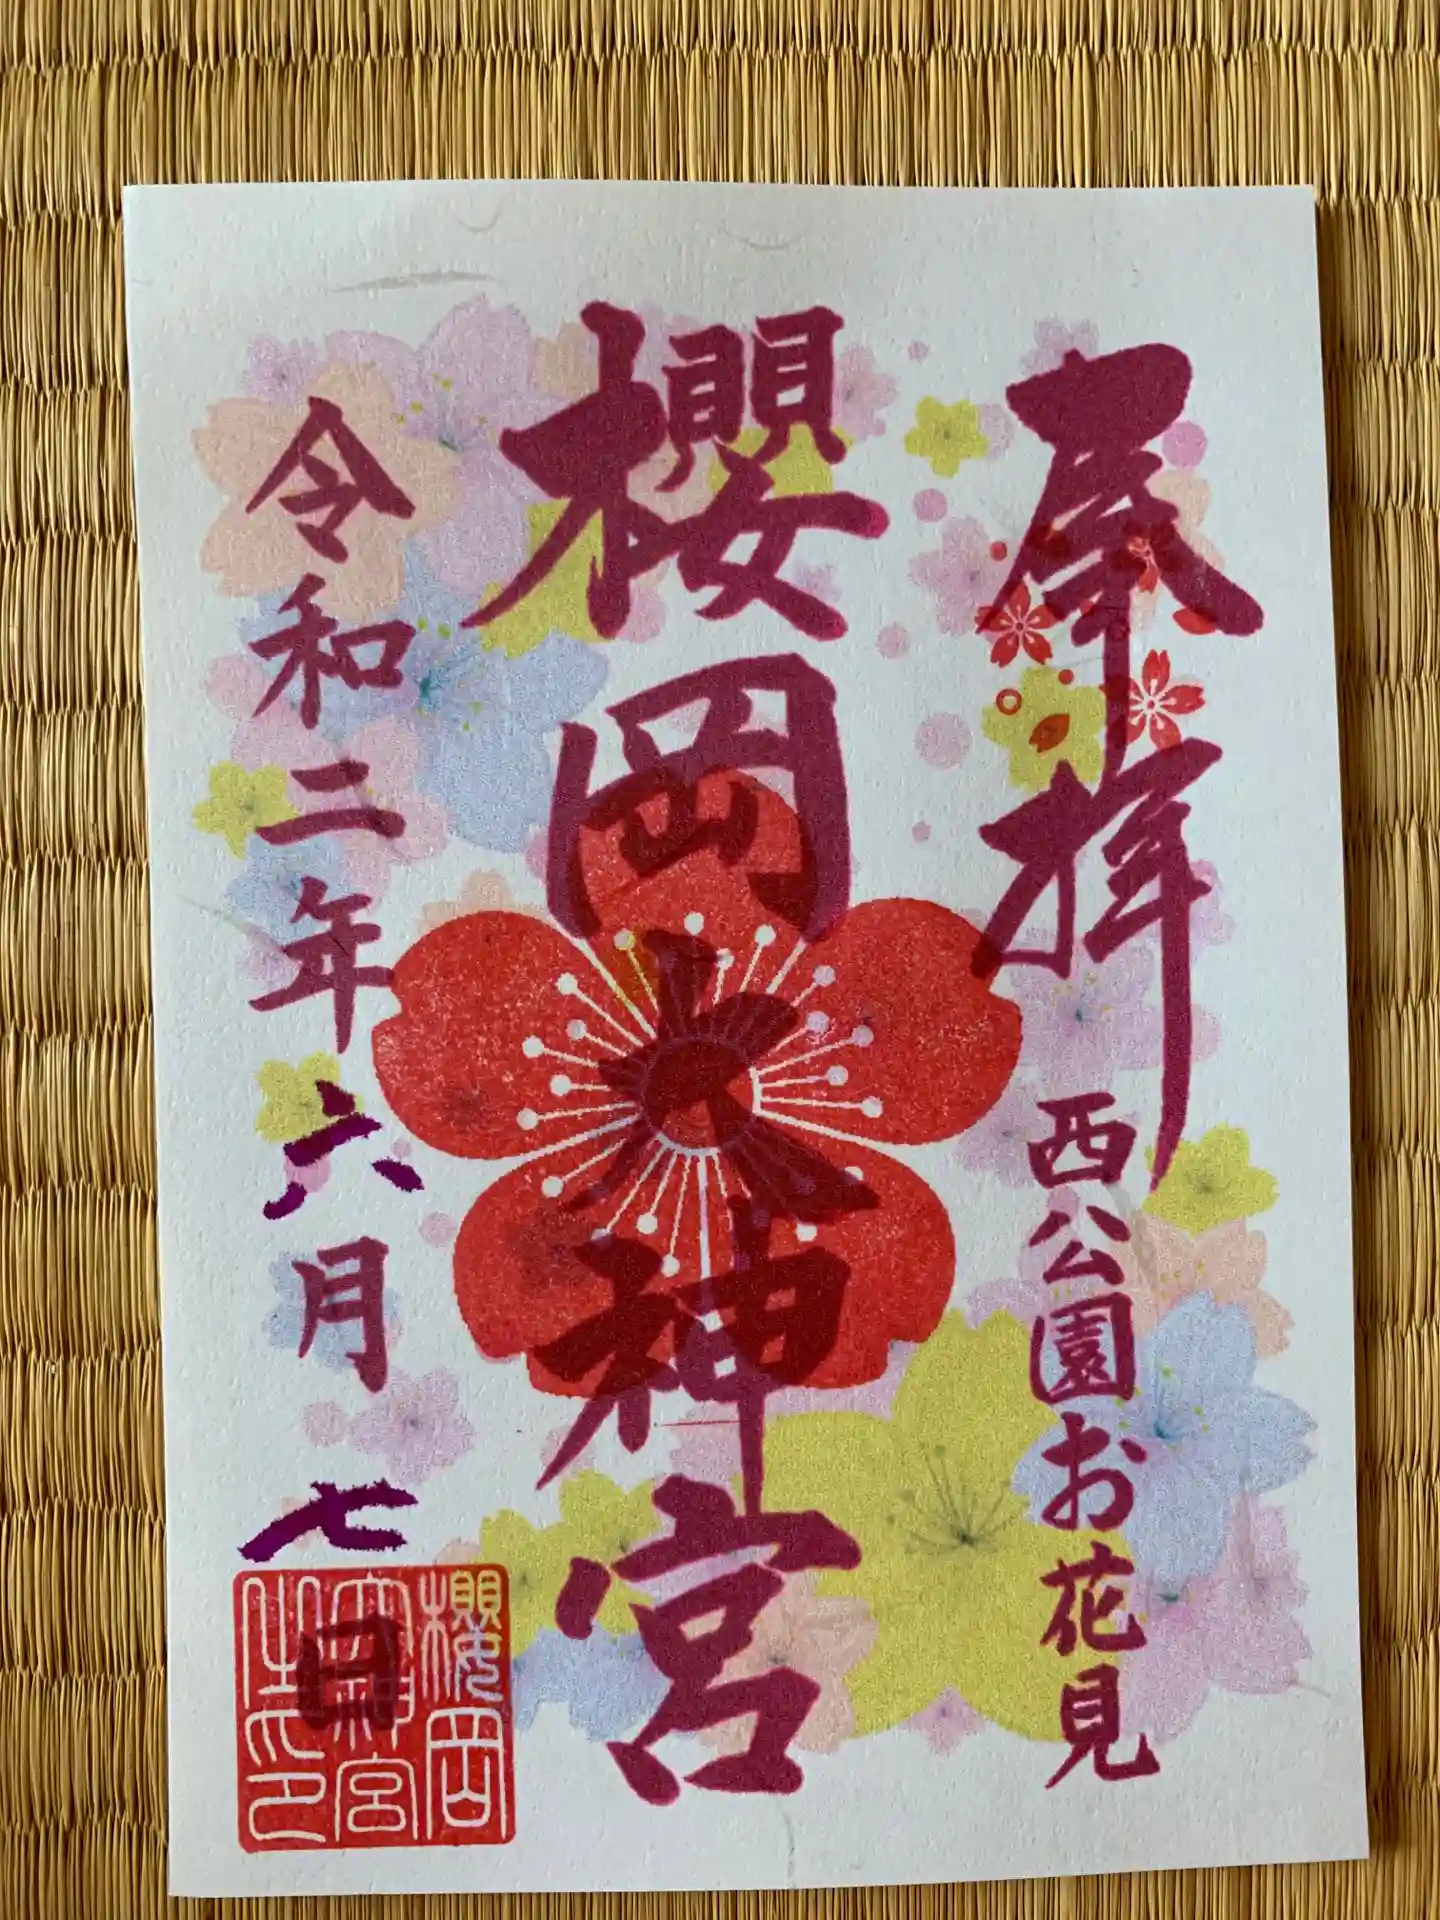 奉拝
西公園お花見
櫻岡大神宮
令和二年六月七日
櫻岡
大神宮
之印